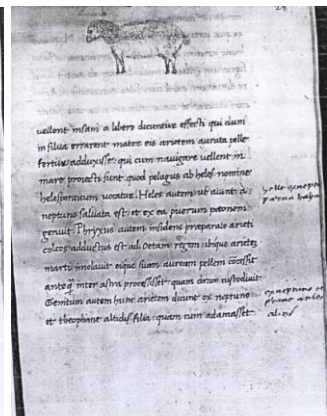 uellent insani a libero dicuntur effecti qui cium
in silua errarent matre eis arietem aurata pelle
fortiter adduxisse: qui cum nauigare uellent in
mare proiecti sunt quod pelagus ab heles nomine
helesponticum uocatur. Heles autem ut aiunt a
neptuno saluata est: et ex ea puerum peonem
genuit. Phryxus autem insidens preparato arieti
colcos adductus est ad Oetam regem: ubique arietem
marti inolauit eique suam auream pellem
anteq inter astra processisset: quam draco custodiuit
Genitum autem hunc arietem dicunt ex neptuno
et theophane altidis filia: quam cum adamasset
ex neptuno